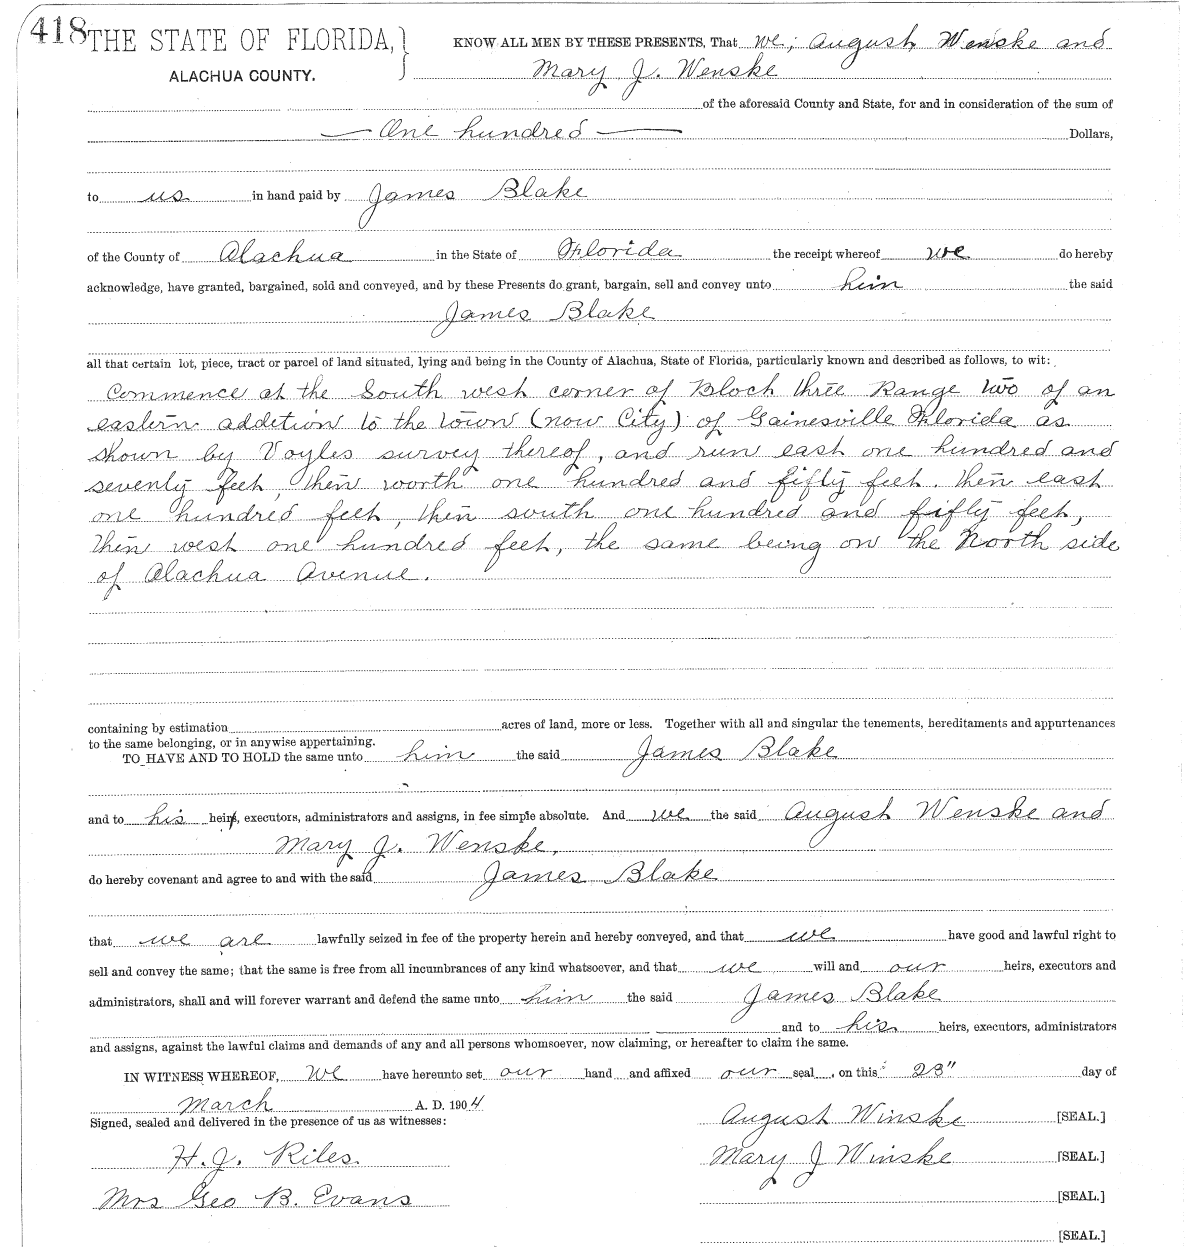 418 THE STATE OF FLORIDA, } KNOW ALL MEN BY THESE PRESENTS, That we, August Wenske and
ALACHUA COUNTY. Mary J. Wenske
of the aforesaid County and State, for and in consideration of the sum of
— One hundred — Dollars,
to us in hand paid by James Blake
of the County of Alachua in the State of Florida the receipt whereof we do hereby
acknowledge, have granted, bargained, sold and conveyed, and by these Presents do grant, bargain, sell and convey unto him the said
James Blake
all that certain lot, piece, tract or parcel of land situated, lying and being in the County of Alachua, State of Florida, particularly known and described as follows, to wit:
Commence at the South west corner of Block three Range two of an
eastern addetion to the town (now City) of Gainesville Florida as
shown by Voyles survey thereof, and run east one hundred and
seventy feet, then worth one hundred and fifty feet. then east
one hundred feet, then south one hundred and fifty feet,
then west one hundred feet, the same being on the North side
of Alachua Avenue.
containing by estimation acres of land, more or less. Together with all and singular the tenements, hereditaments and appurtenances
to the same belonging, or in anywise appertaining.
TO HAVE AND TO HOLD the same unto him the said James Blake
and to his heirs, executors, administrators and assigns, in fee simple absolute. And we the said August Wenske and
Mary J. Wenske,
do hereby covenant and agree to and with the said James Blake
that we are lawfully seized in fee of the property herein and hereby conveyed, and that we have good and lawful right to
sell and convey the same; that the same is free from all incumbrances of any kind whatsoever, and that we will and our heirs, executors and
administrators, shall and will forever warrant and defend the same unto him the said James Blake
and to his heirs, executors, administrators
and assigns, against the lawful claims and demands of any and all persons whomsoever, now claiming, or hereafter to claim the same.
IN WITNESS WHEREOF, we have hereunto set our hand and affixed our seal, on this 23" day of
March A. D. 1904
Signed, sealed and delivered in the presence of us as witnesses: August Winske [SEAL.]
H. J. Riles. Mary J Winske [SEAL.]
Mrs Geo B. Evans [SEAL.]
[SEAL.]